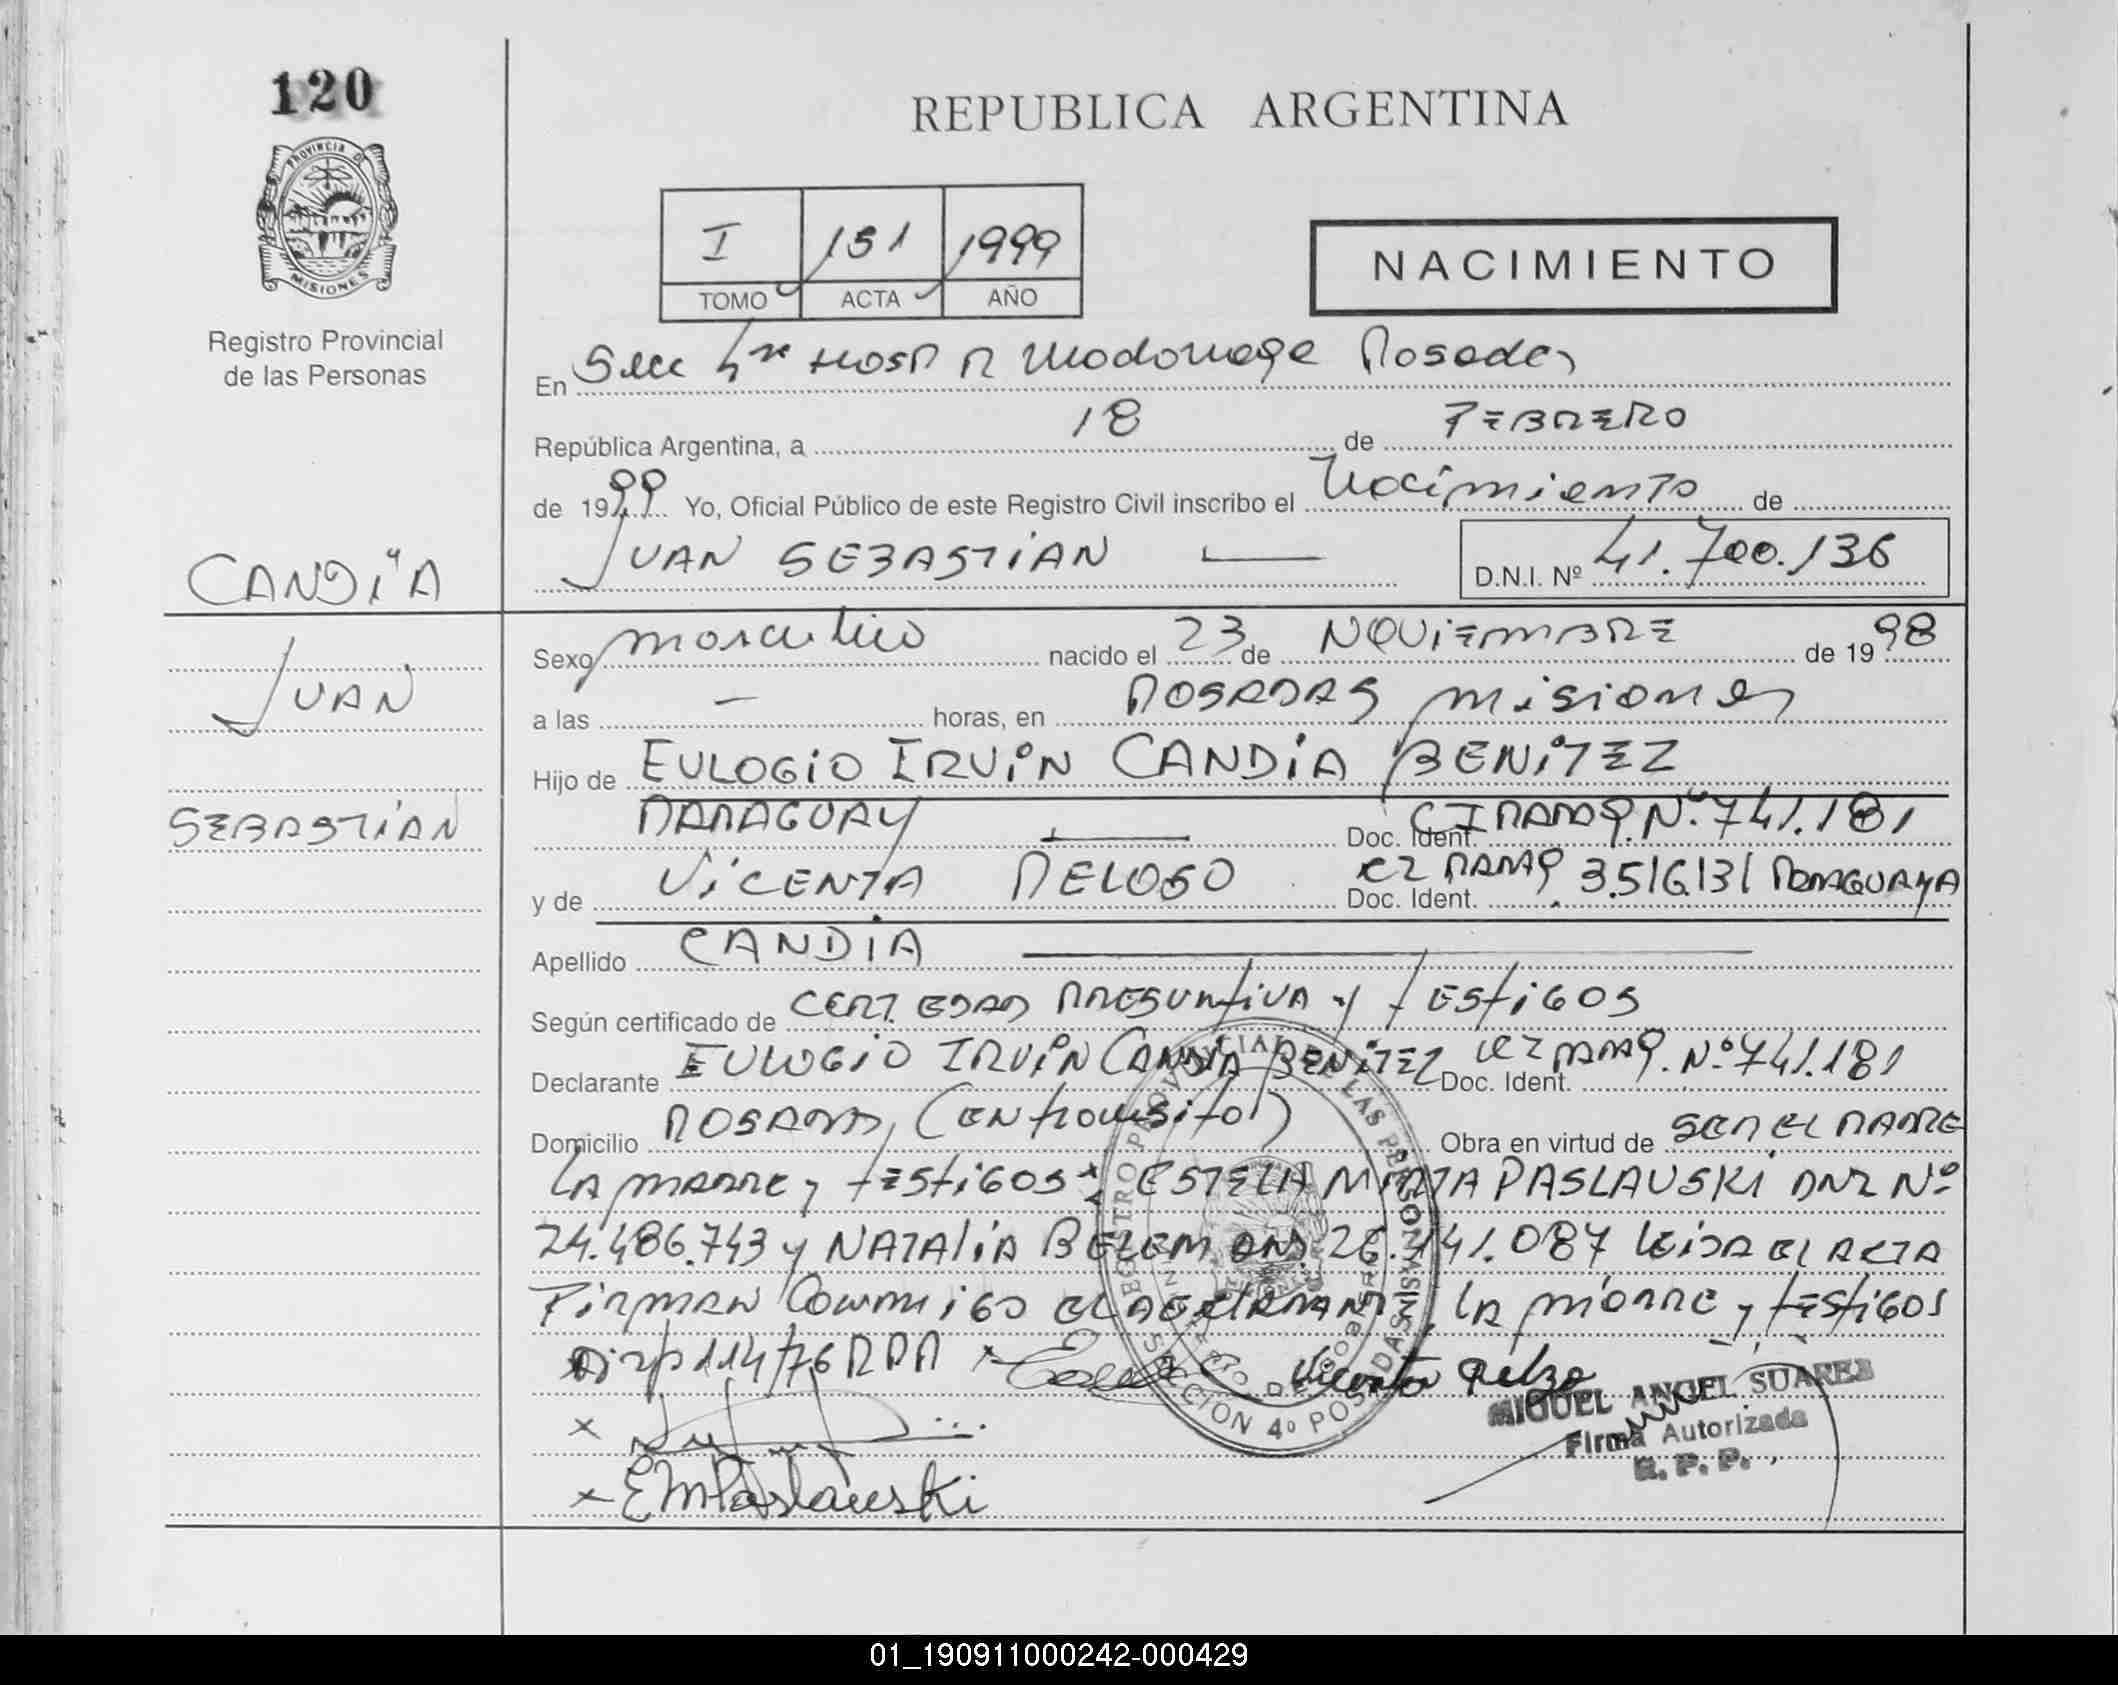 120
PROVINCIA DE
MISIONES
Registro Provincial
de las Personas
REPUBLICA ARGENTINA
I 151 1999
TOMO ACTA AÑO
NACIMIENTO
En Secc 4ta HOSP R Madariaga Posadas
República Argentina, a 18 de FEBRERO
de 1999 Yo, Oficial Público de este Registro Civil inscribo el Nacimiento de
JUAN SEBASTIAN
D.N.I. Nº 41.700.136
CANDIA
JUAN
SEBASTIAN
Sexo masculino nacido el 23 de NOVIEMBRE de 1998
a las — horas, en POSADAS misiones
Hijo de EULOGIO IRVIN CANDIA BENITEZ
PARAGUAY Doc. Ident. CI PARAG. Nº 741.181
y de VICENTA PELOSO Doc. Ident. CI PARAG 3.516.131 PARAGUAYA
Apellido CANDIA
Según certificado de CERT. EDAD PRESUNTIVA y TESTIGOS
Declarante EULOGIO IRVIN CANDIA BENITEZ Doc. Ident. CI PARAG. Nº 741.181
Domicilio POSADAS (EN transito) Obra en virtud de SER EL PADRE
LA MADRE y TESTIGOS: ESTELA MIRTA PASLAUSKI DNI Nº
24.486.743 y NATALIA BELEM DNI. 26.141.087 LEIDA EL ACTA
FIRMAN Conmigo EL DECLARANTE, LA MADRE y TESTIGOS
Disp 114/76 RPP x Vicenta
x
x EMPaslauski
REGISTRO PROVINCIAL DE LAS PERSONAS
SECCION 4º POSADAS MISIONES
MINISTERIO DE GOBIERNO
MIGUEL ANGEL SUARES
Firma Autorizada
R. P. P.
01_190911000242-000429